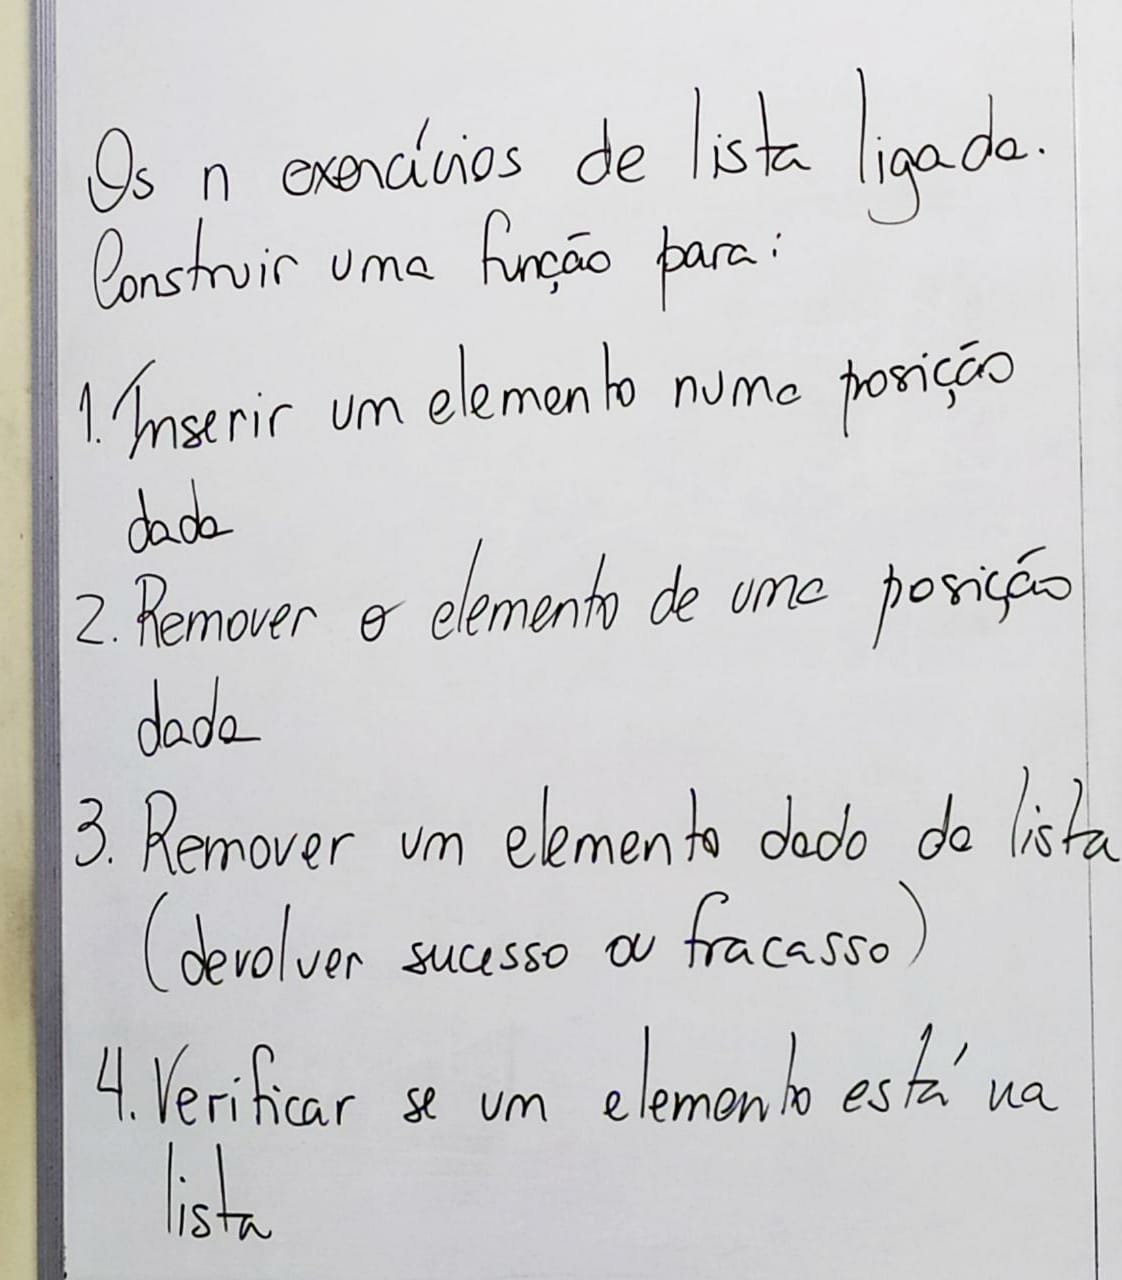 Os n exercícios de lista ligada.
Construir uma função para:
1. Inserir um elemento numa posição
dada
2. Remover o elemento de uma posição
dada
3. Remover um elemento dado da lista
(devolver sucesso ou fracasso)
4. Verificar se um elemento está na
lista